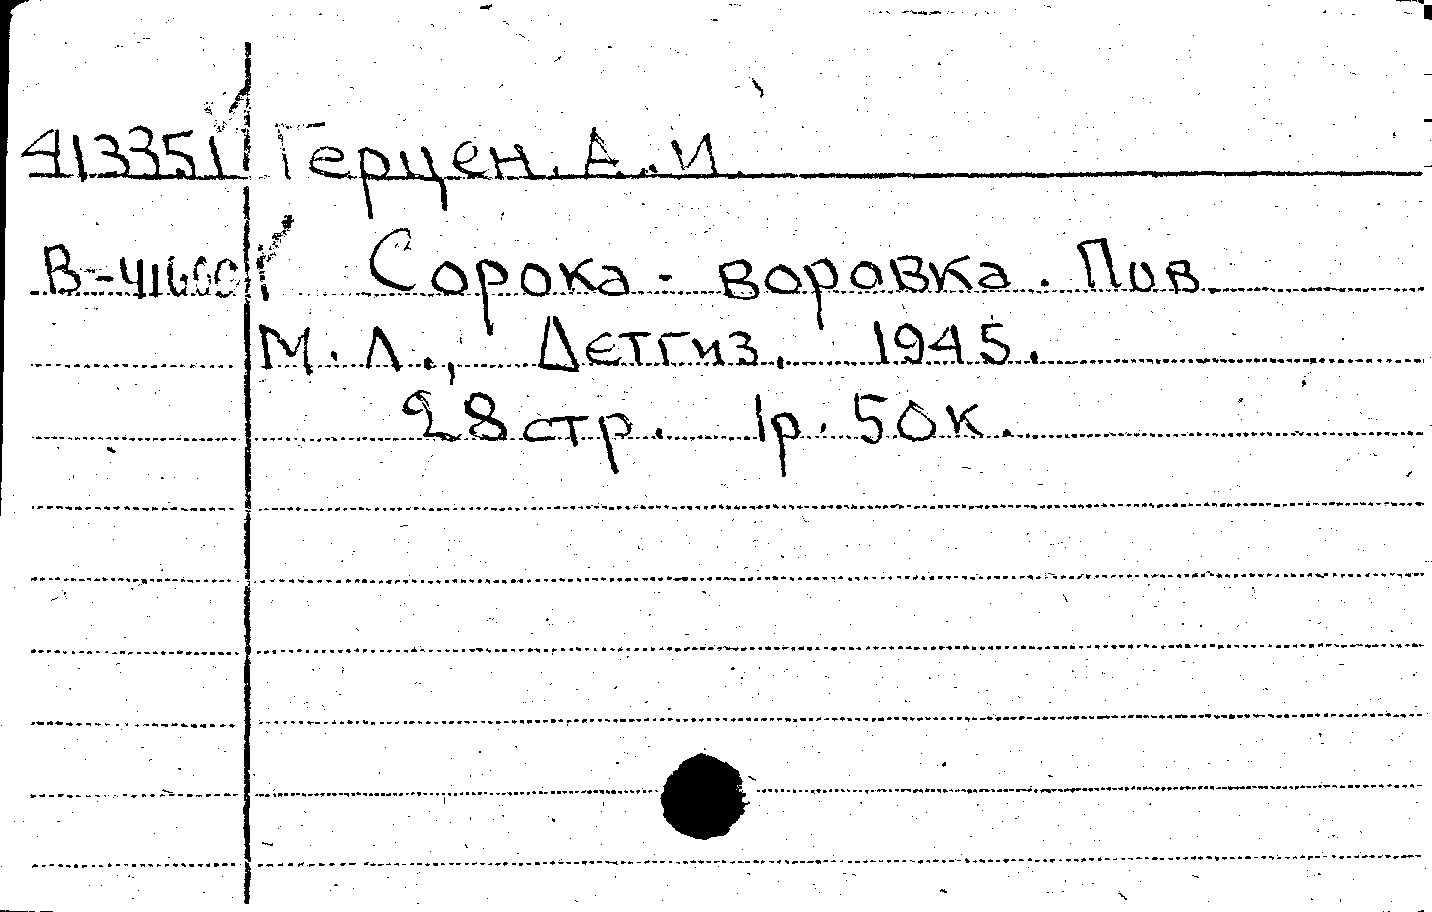 413351 Герцен. А. И.
В-41600 Сорока - воровка. Пов.
М. Л., Детгиз, 1945.
28 стр. 1р. 50к.